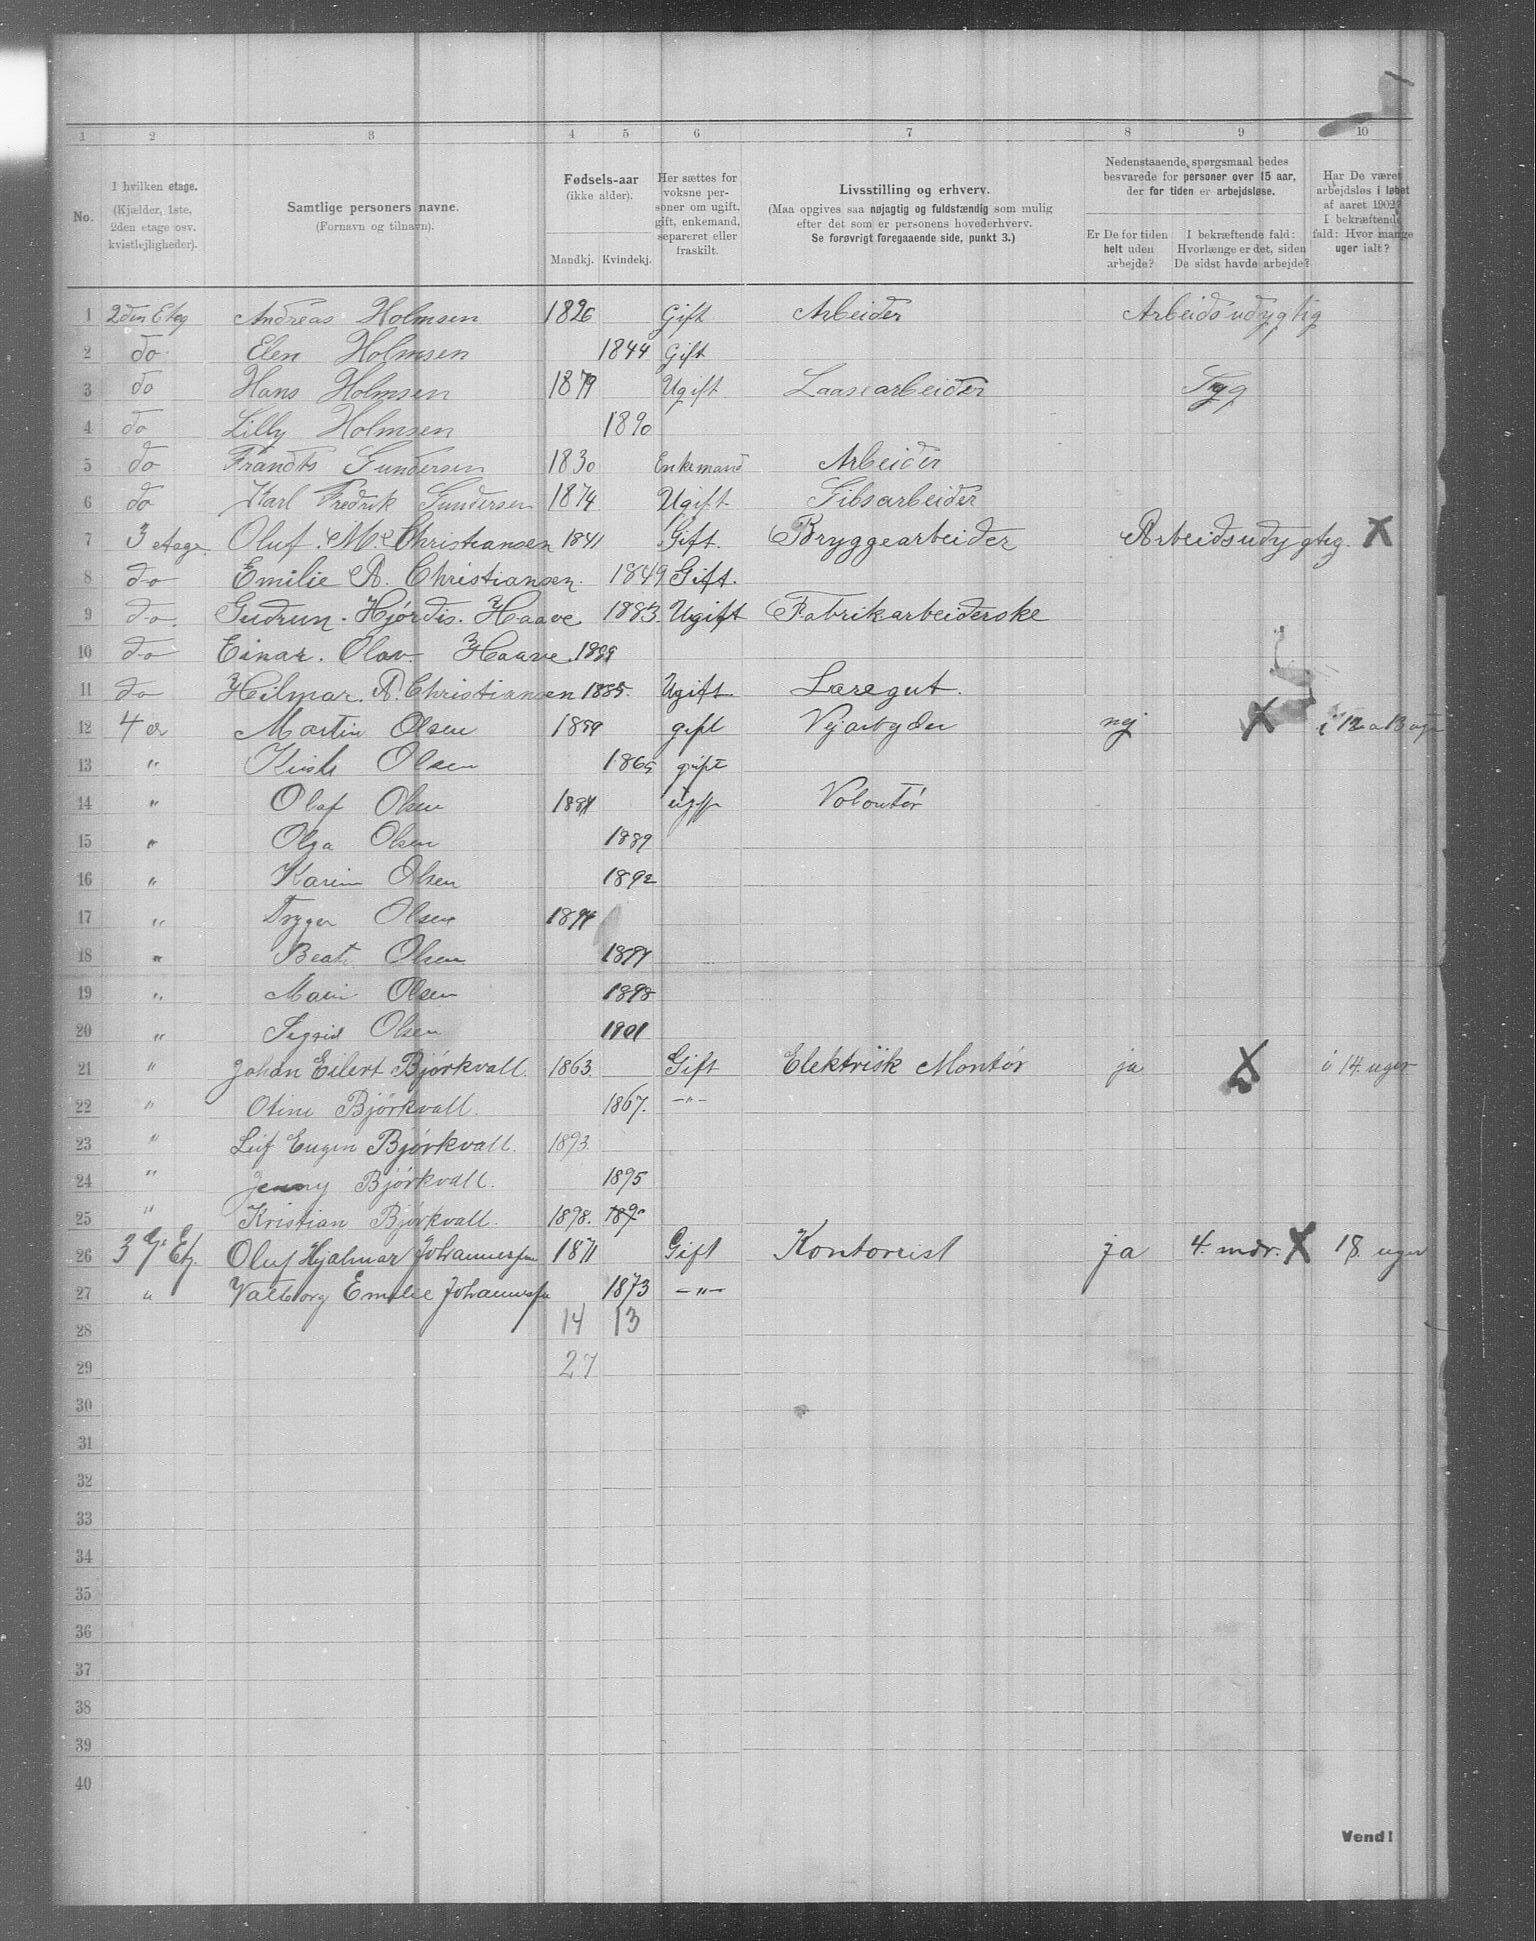 1 2 3 4 5 6 7 8 9 10
No.
I hvilken etage.
(Kjælder, 1ste,
2den etage osv.
kvistlejligheder).
Samtlige personers navne.
(Fornavn og tilnavn).
Fødsels-aar
(ikke alder).
Mandkj. Kvindekj.
Her sættes for
voksne per-
soner om ugift,
gift, enkemand,
separeret eller
fraskilt.
Livsstilling og erhverv.
(Maa opgives saa nøjagtig og fuldstændig som mulig
efter det som er personens hovederhverv.
Se forøvrigt foregaaende side, punkt 3.)
Nedenstaaende spørgsmaal bedes
besvarede for personer over 15 aar,
der for tiden er arbejdsløse.
Er De for tiden
helt uden
arbejde?
I bekræftende fald:
Hvorlænge er det, siden
De sidst havde arbejde?
Har De været
arbejdsløs i løbet
af aaret 1902?
I bekræftende
fald: Hvor mange
uger ialt?
1 2den Etag Andreas Holmsen 1826 Gift Arbeider Arbeidsudygtig
2 do Elen Holmsen 1844 Gift
3 do Hans Holmsen 1879 Ugift Laasearbeider Syg
4 do Lilly Holmsen 1890
5 do Frandts Gundersen 1830 Enkemand Arbeider
6 do Karl Fredrik Gundersen 1874 Ugift Gibsarbeider
7 3 etage Oluf. M. Christiansen 1841 Gift. Bryggearbeider Arbeidsudygtig. X
8 do Emilie A. Christiansen. 1849 Gift.
9 do. Gudrun. Hjørdis. Haave 1883. Ugift Fabrikarbeiderske
10 do Einar. Olav. Haave. 1899
11 do Hilmar. A. Christiansen 1885. Ugift Læregut.
12 4 Martin Olsen 1859 gift Vejarbeder nej X i 12 a 13
13 " Olsen 1865 gift
14 " Olaf Olsen 1884 ugift Volontør
15 " Olga Olsen 1889
16 " Karin Olsen 1892
17 " Olsen 1894
18 " Olsen 1897
19 " Olsen 1898
20 " Sigrid Olsen 1901
21 " Johan Eilert Bjørkvall. 1863. Gift Elektrisk Montør ja X i 14. uger
22 " Otine Bjørkvall. 1867. -"-
23 " Leif Eugen Bjørkvall. 1893.
24 " Jenny Bjørkvall. 1895
25 " Kristian Bjørkvall. 1898. 189
26 3 G. Etg. Oluf Hjalmar Johannessen 1871 Gift Kontorist ja 4. mdr. X 18 uger
27 " Valborg Emilie Johannessen 1873 -"-
28 14 13
29 27
30
31
32
33
34
35
36
37
38
39
40
Vend!